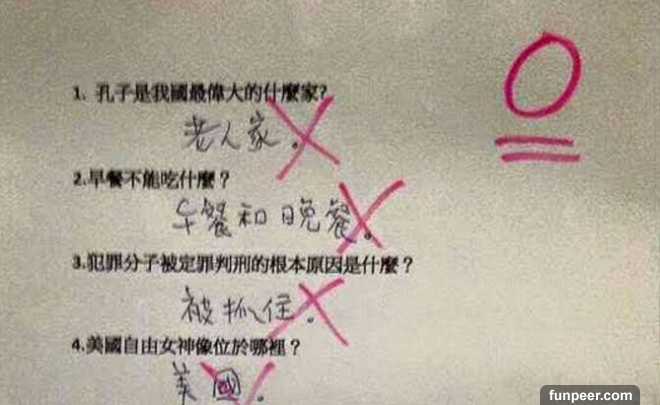 0
1. 孔子是我國最偉大的什麼家?
老人家。
2.早餐不能吃什麼？
午餐和晚餐。
3.犯罪分子被定罪判刑的根本原因是什麼？
被抓住。
4.美國自由女神像位於哪裡？
美國。
funpeer.com